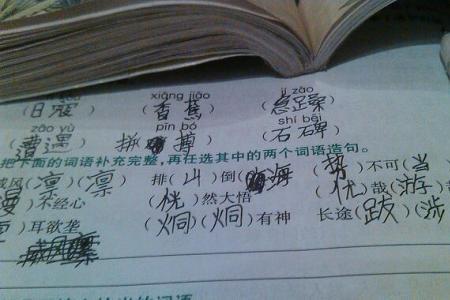 xiāng jiāo jí zào
(日寇) (香蕉) (急躁)
zāo yù pīn bó shí bēi
(遭遇) 拼搏 (石碑)
把下面的词语补充完整,再任选其中的两个词语造句。
威风(凛)(凛) 排(山)倒(海) (势)不可(当
(漫)不经心 (恍)然大悟 (优)哉(游)哉
)耳欲聋 (炯)(炯)有神 长途(跋)(涉
威风凛